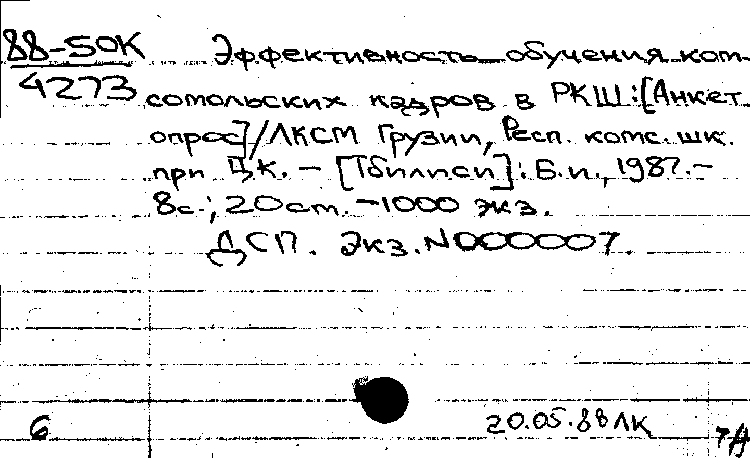 88-50К Эффективность обучения ком-
4273 сомольских кадров в РКШ: [Анкет.
опрос] / ЛКСМ Грузии, Респ. комс. шк.
при ЦК. – [Тбилиси] : Б.и., 1987. –
8с.; 20 см. – 1000 экз.
ДСП. Экз. N000007.
6 20.05.88 ЛК